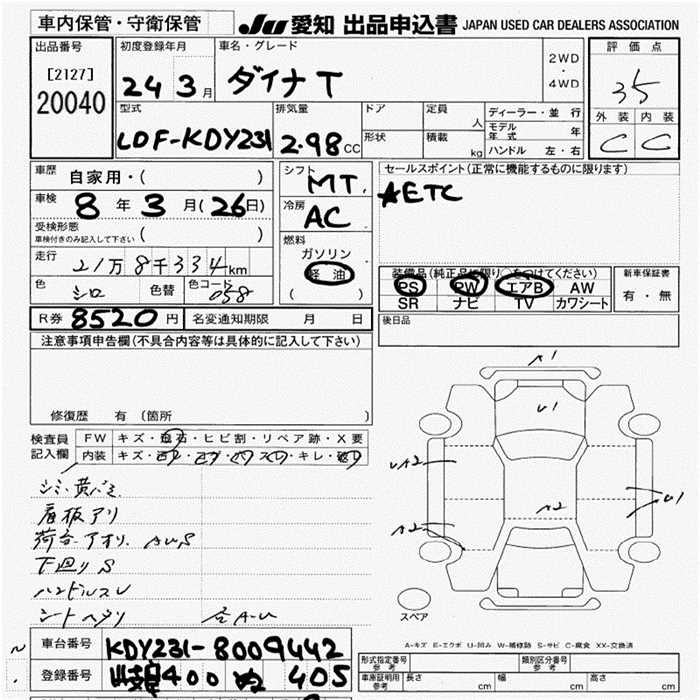 車内保管・守衛保管
JU 愛知 出品申込書 JAPAN USED CAR DEALERS ASSOCIATION
出品番号 [2127] 20040
初度登録年月 24 3月
車名・グレード ダイナT
2WD・4WD
評価点 35
型式 LDF-KDY231
排気量 2.98 CC
ドア 形状
定員 人 積載 kg
ディーラー・並行
モデル年式 年
ハンドル 左・右
外装 内装
C C
車歴 自家用・( )
シフト MT
セールスポイント(正常に機能するものに限ります)
★ETC
車検 8年3月(26日)
冷房 AC
受検形態 車検付きのみ記入して下さい ( )
燃料 ガソリン 軽油 ( )
走行 21万8千334km
色 シロ 色替 色コード 058
装備品(純正品に限り○をつけてください)
PS PW エアB AW
SR ナビ TV カワシート
新車保証書 有・無
R券 8520円 名変通知期限 月 日
後日品
注意事項申告欄(不具合内容等は具体的に記入して下さい)
修復歴 有 (箇所
検査員記入欄
FW キズ・飛石・ヒビ割・リペア跡・X要
内装 キズ・キレ・
シミ・黄バミ
看板アリ
荷台アオリ AUS
下廻りS
ハンドルスレ
シートヘタリ
A1
U1
UA2
A2
A2
U1
スペア
A-キズ E-エクボ U-凹み W-補修跡 S-サビ C-腐食 XX-交換済
車台番号 KDY231-8009442
登録番号 岐阜400 ぬ 405
形式指定番号 参考
類別区分番号 参考
車庫証明用 参考 長さ cm 幅 cm 高さ cm